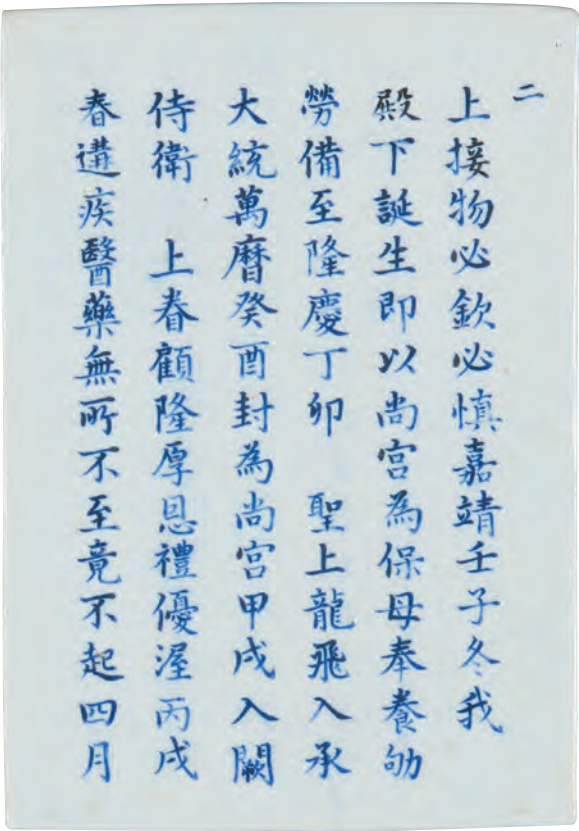 二
上接物必欽必慎嘉靖壬子冬我
殿下誕生即以尚宮為保母奉養劬
勞備至隆慶丁卯　聖上龍飛入承
大統萬曆癸酉封為尚宮甲戌入闕
侍衛　上眷顧隆厚恩禮優渥丙戌
春遘疾醫藥無所不至竟不起四月